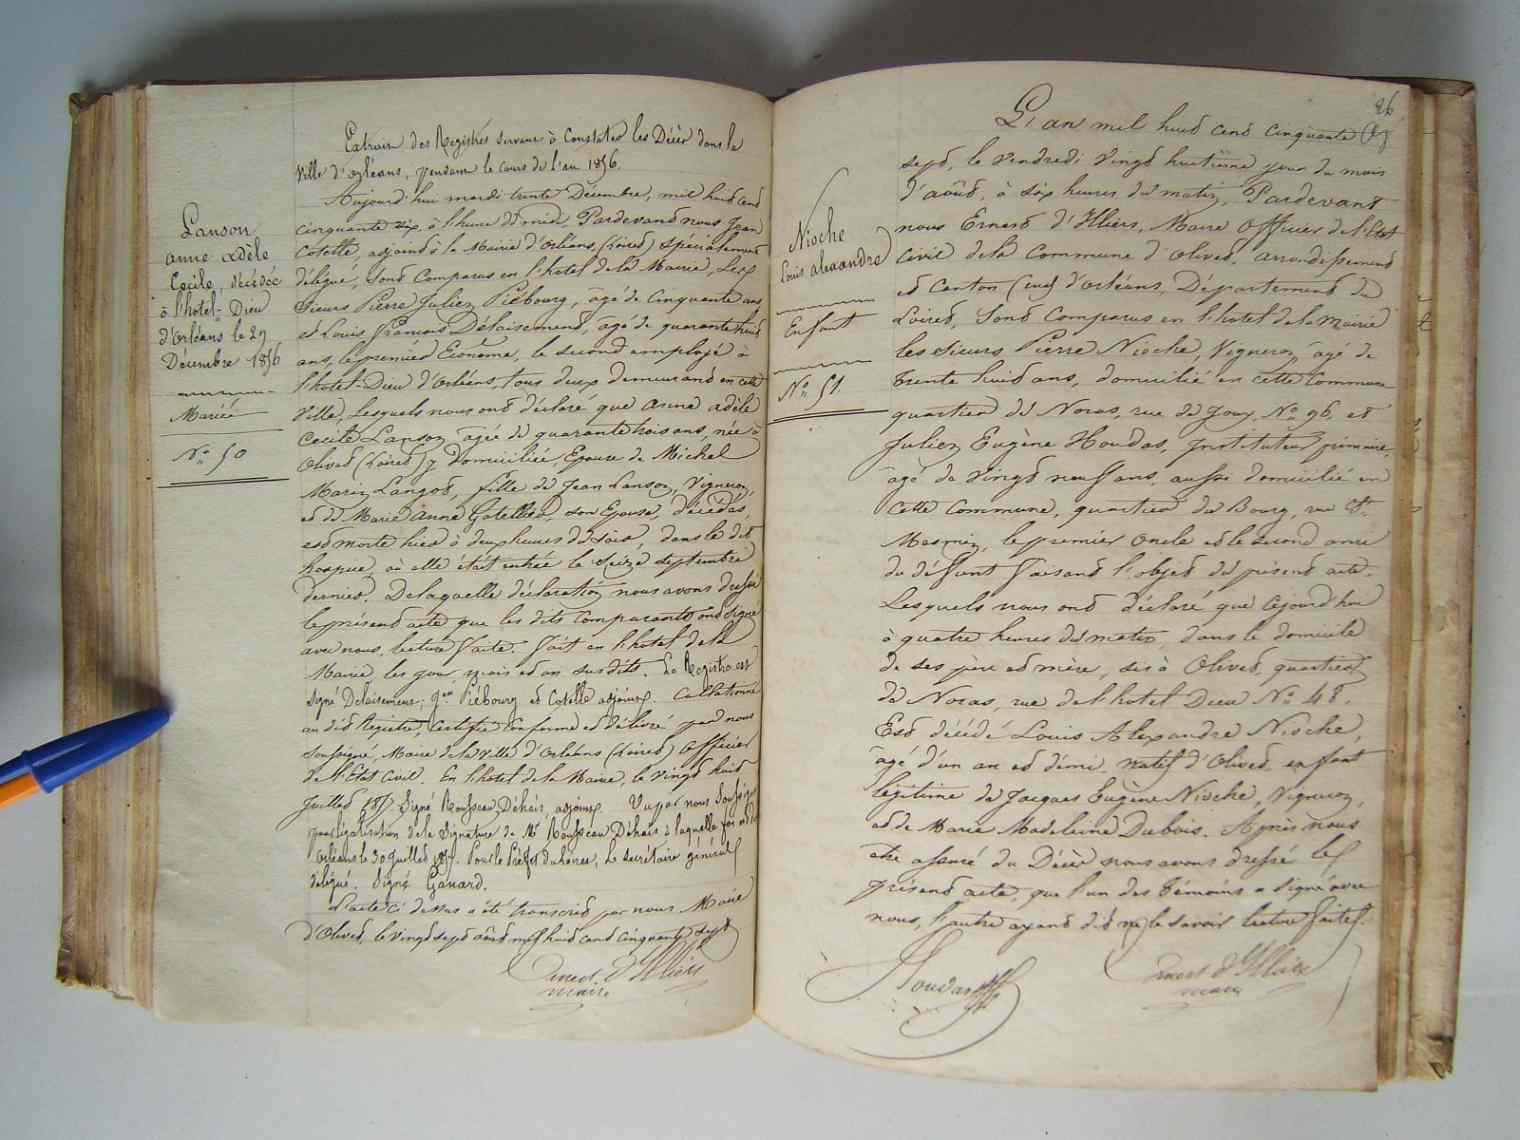 Extrait des Registres servant à Constater les Décès dans la
Ville d'orléans, pendant le cours de l'an 1856.
Aujourd'hui mardi trente Décembre, mil huit cent
cinquante six, à l'heure de midi, Pardevant nous Jean
Cotelle, adjoint à la Mairie d'Orléans, (Loiret) spécialement
délégué, sont Comparus en l'hotel de la Mairie, Les
Sieurs Pierre Julien Piébourg, âgé de cinquante ans
et Louis François Délaisement, âgé de quarante huit
ans, le premier Econôme, le second employé à
l'hotel-Dieu d'Orléans, tous deux demeurant en cette
Ville, Lesquels nous ont déclaré que anne adèle
Cecile Lanson âgée de quarante trois ans, née à
Olivet (Loiret) y domiciliée, Epouse de Michel
Marin Langot, fille de Jean Lanson, Vigneron,
et de Marie Anne Gatellier, son Epouse, décédés,
est morte hier à deux heures du soir, dans le dit
hospice, où elle était entrée le seize septembre
dernier. De laquelle déclaration nous avons dressé
le présent acte que les dits Comparants ont signé
avec nous, lecture faite. Fait en l'hotel de la
Mairie, les jour, mois et an susdits. Le Registre est
signé Delaisement, Piébourg et Cotelle adjoint. Collationné
au dit Registre, certifié conforme et délivré par nous
soussigné, Maire de la Ville d'Orléans (Loiret) Officier
de l'Etat Civil. En l'hotel de la Mairie, le vingt huit
Juillet 1857 Signé Rousseau Déhais, adjoint Vu par nous
pour légalisation de la Signature de Mr Rousseau Déhais à laquelle foi est due
Orléans le 30 Juillet 1857. Pour le Préfet du Loiret, Le secrétaire général
délégué. Signé Gauard.
L'acte ci dessus a été transcrit par nous Maire
d'Olivet, le vingt sept août mil huit cent cinquante sept
Ernest d'Illiers
maire
Lanson
anne adèle
Cecile, décédée
à l'hotel-Dieu
d'Orléans le 29
Décembre 1856
Mariée
No 50
26
L'an mil huit cent cinquante
sept, le vendredi vingt huitième jour du mois
d'août, à six heures du matin, Pardevant
nous Ernest d'Illiers, Maire Officier de l'Etat
Civil de la Commune d'Olivet, arrondissement
et Canton (sud) d'orléans, Département du
Loiret, Sont Comparus en l'hotel de la Mairie
les Sieurs Pierre Nioche, Vigneron, âgé de
trente huit ans, domicilié en cette Commune
quartier du Noras, rue de Jouy, No 96, et
Julien Eugène Houdas, Instituteur primaire,
âgé de vingt neuf ans, aussi domicilié en
cette Commune, quartier du Bourg, rue St.
Mesmin, le premier oncle et le second ami
du défunt faisant l'objet du présent acte.
Lesquels nous ont déclaré que cejourd'hui
à quatre heures du matin, dans le domicile
de ses père et mère, sis à Olivet, quartier
du Noras, rue de l'hotel Dieu No 48,
Est décédé Louis Alexandre Nioche,
âgé d'un an et demi, natif d'Olivet, enfant
légitime de Jacques Eugène Nioche, Vigneron,
et de Marie Madeleine Dubois. Après nous
être assuré du Décès nous avons dressé le
présent acte, que l'un des témoins a signé avec
nous, l'autre ayant dit ne le savoir lecture faite.
Houdas
Ernest d'Illiers
maire
Nioche
Louis alexandre
Enfant
No 51